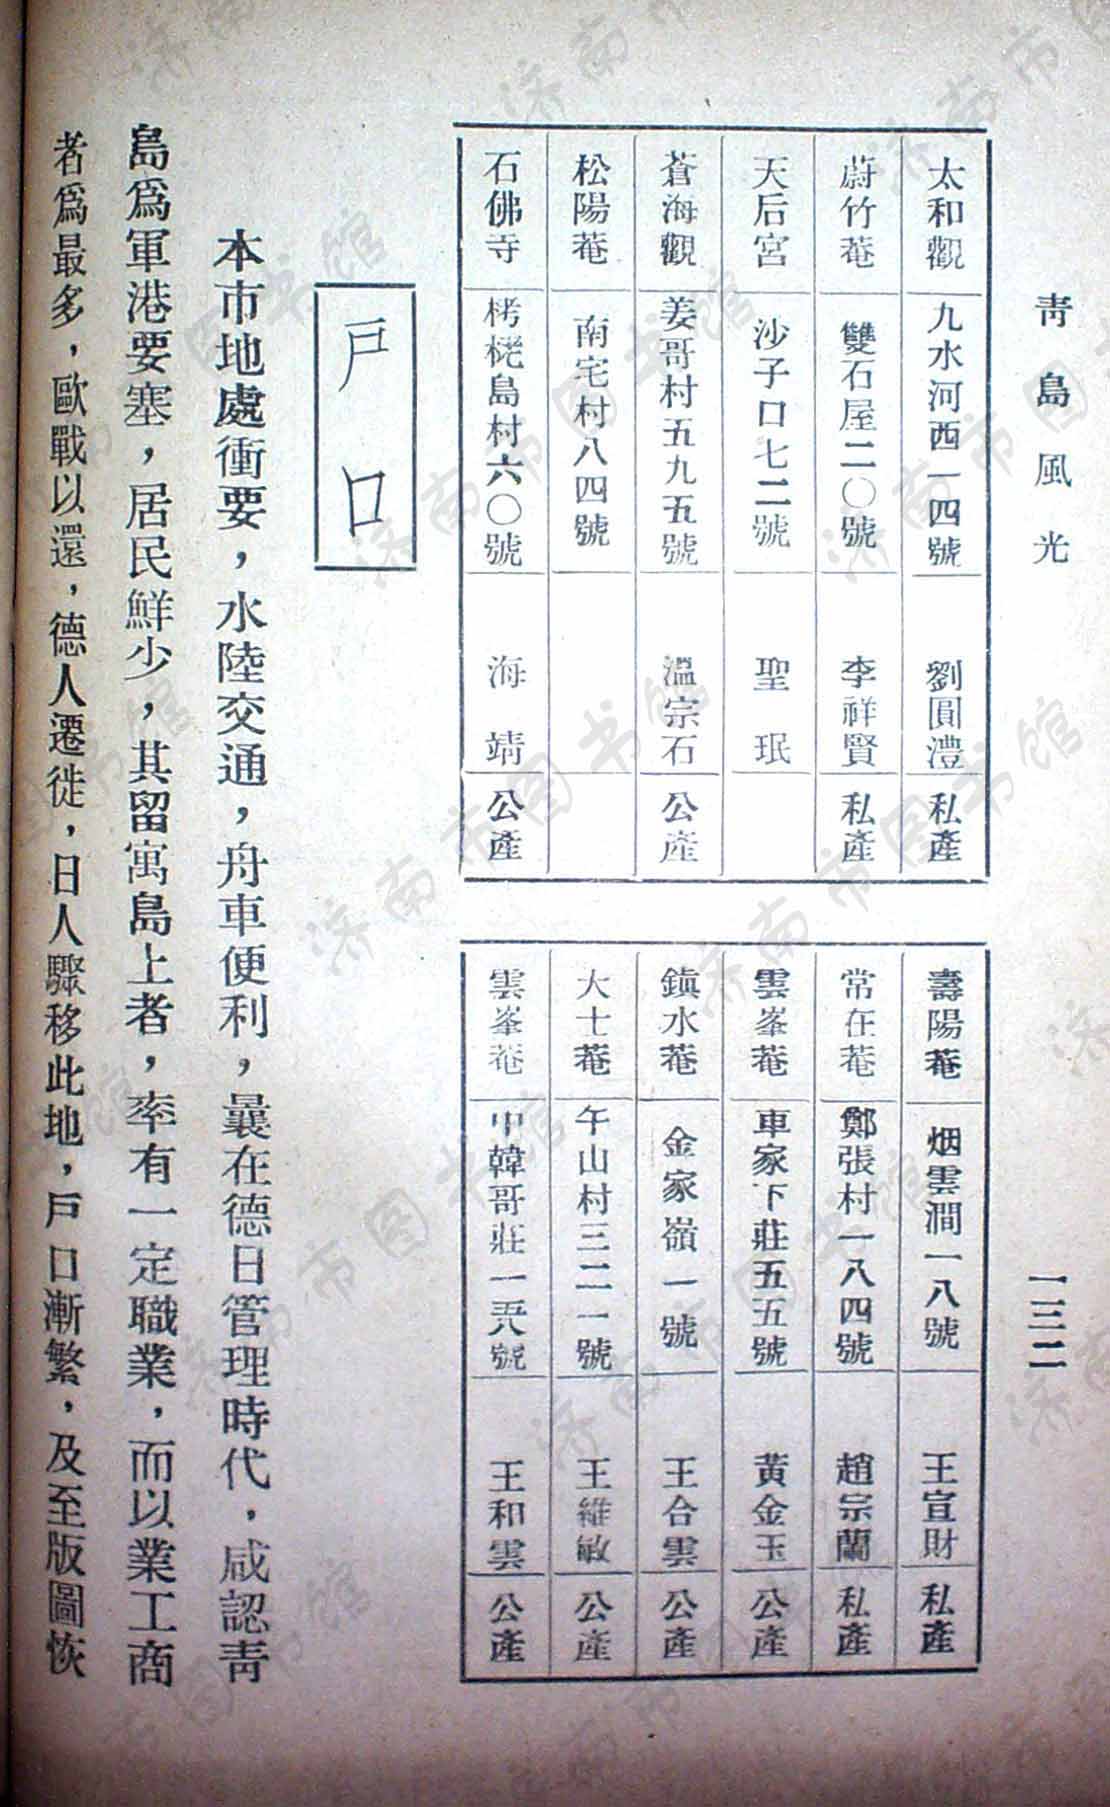 青島風光
一三二
太和觀 九水河西一四號 劉圓澧 私產
蔚竹菴 雙石屋二〇號 李祥賢 私產
天后宮 沙子口七二號 聖珉
蒼海觀 姜哥村五九五號 溫宗石 公產
松陽菴 南宅村八四號
石佛寺 栲栳島村六〇號 海靖 公產
壽陽菴 烟雲澗一八號 王宣財 私產
常在菴 鄭張村一八四號 趙宗蘭 私產
雲峯菴 車家下莊五五號 黃金玉 公產
鎮水菴 金家嶺一號 王合雲 公產
大士菴 午山村三二一號 王維敏 公產
雲峯菴 中韓哥莊一五八號 王和雲 公產
戶口
本市地處衝要，水陸交通，舟車便利，曩在德日管理時代，咸認青
島爲軍港要塞，居民鮮少，其留寓島上者，率有一定職業，而以業工商
者爲最多，歐戰以還，德人遷徙，日人驟移此地，戶口漸繁，及至版圖恢
济南市图书馆